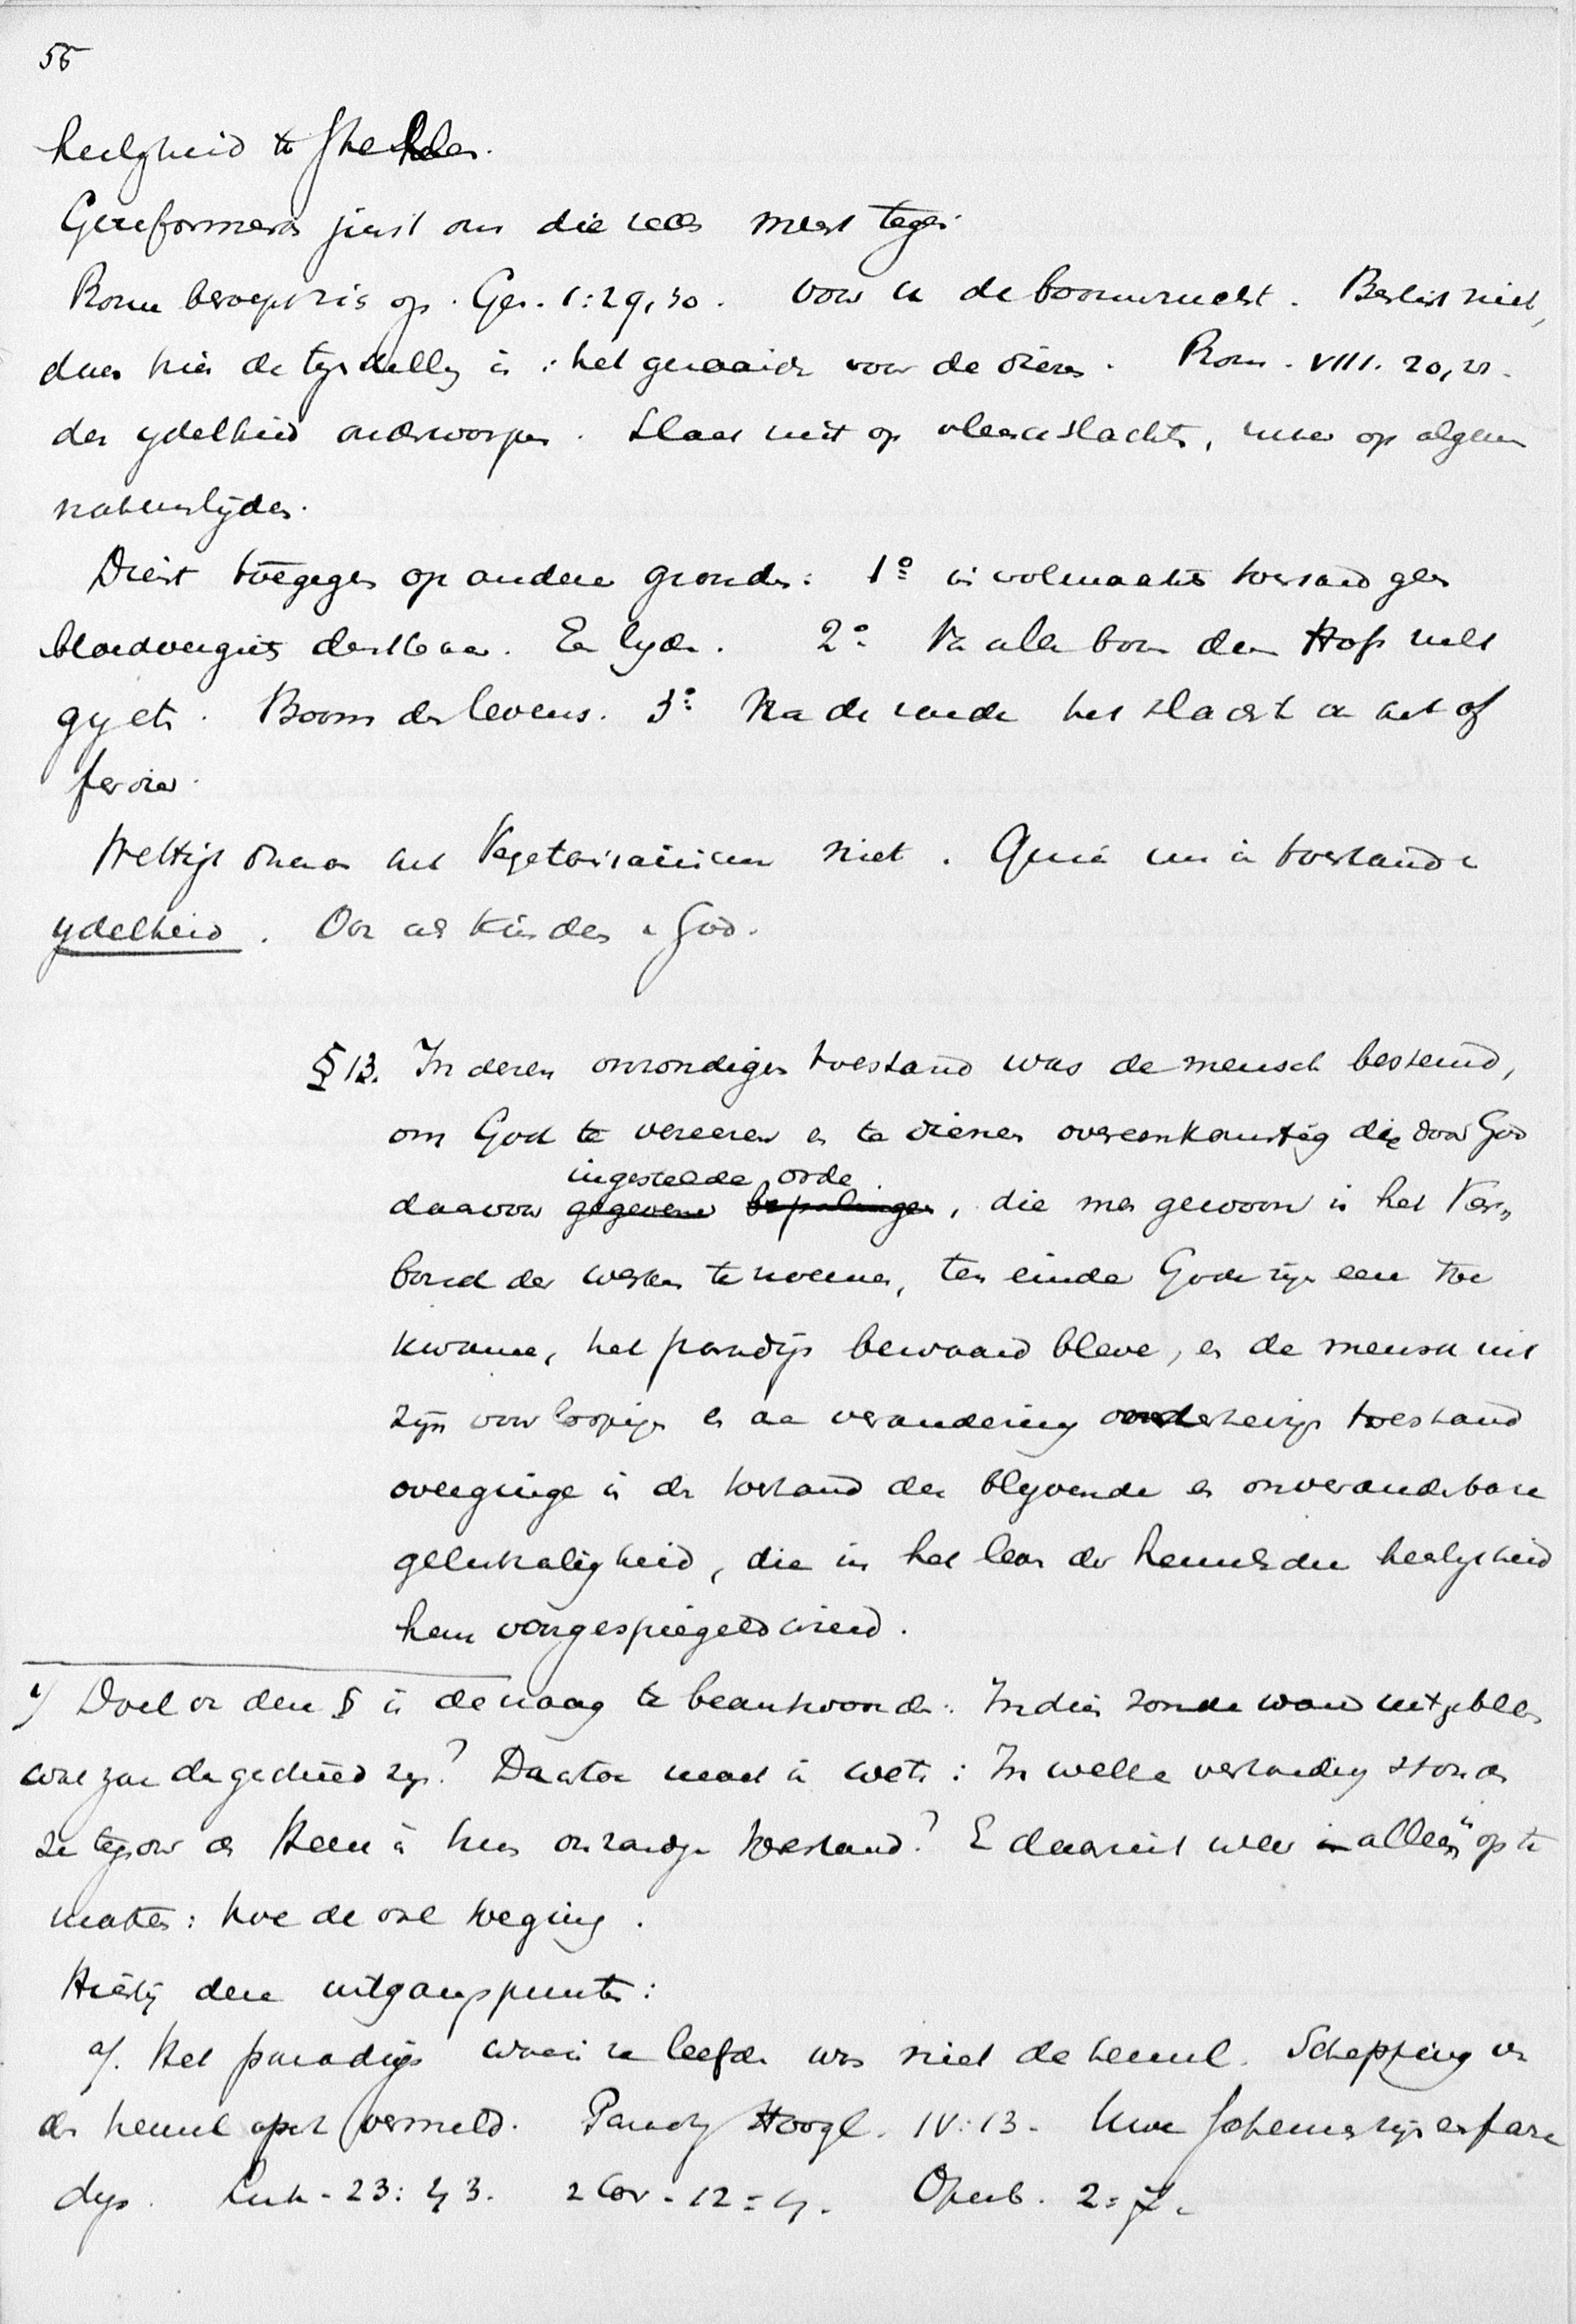 56
heiligheid te
Gereformeerd juist om die rede meest tegen
Rome beroept zich op. Gen. 1:29,30. voor u de boomvrucht. Beslist niet,
daar hier de tegenstelling is: het gezaaide voor de dieren. Rom. VIII. 20, 21.
der ydelheid onderworpen. Slaat niet op vleeschslachten, maar op algem
natuurlijden.
Dient toegegeven op andere gronden: 1o in volmaakte toestand geen
bloedvergiet denkbaar. En lyden. 2o Van allen boom den Hofs zult
gy eten. Boom des levens. 3o Na de zonde het slacht en het of
ferdier.
Wettigt daarom het Vegetarianisme niet. Quia nu in toestand v
ydelheid. Ook als kinderen v God.
§ 13. In deren onzondigen toestand was de mensch bestemd,
om God te vereeren en te dienen overeenkomstig die door God
ingestelde orde
daarvoor gegevene bepalingen, die men gewoon is het Ver„
bond der werken te noemen, ten einde Gode zijn eere toe
kwame, het paradijs bewaard bleve, en de mensch uit
zijn voorloopigen en aan verandering onderhevigen toestand
overginge in den toestand der blyvende en onveranderbare
gelukzaligheid, die in het leven der hemelsche heerlijkheid
hem voorgespiegeld wierd.
1/ Doel van den § is de vraag te beantwoorden: Indien zonde ware uitgebleven
wat zou dan geschied zijn? Daartoe noodig is weten: In welke verhouding stonden
ze tegenover den Heere in hun onzondigen toestand? En daaruit weer alleen op te
maken: hoe de val toeging.
Hierbij deze uitgangspunten:
a/. Het paradijs waarin ze leefden was niet de hemel. Schepping van
den hemel apart vermeld. Paradijs Hoogl. IV:13. Uwe scheuten zijn een para
dijs. Luk. 23:43. 2 Cor. 12:4. Openb. 2:7.